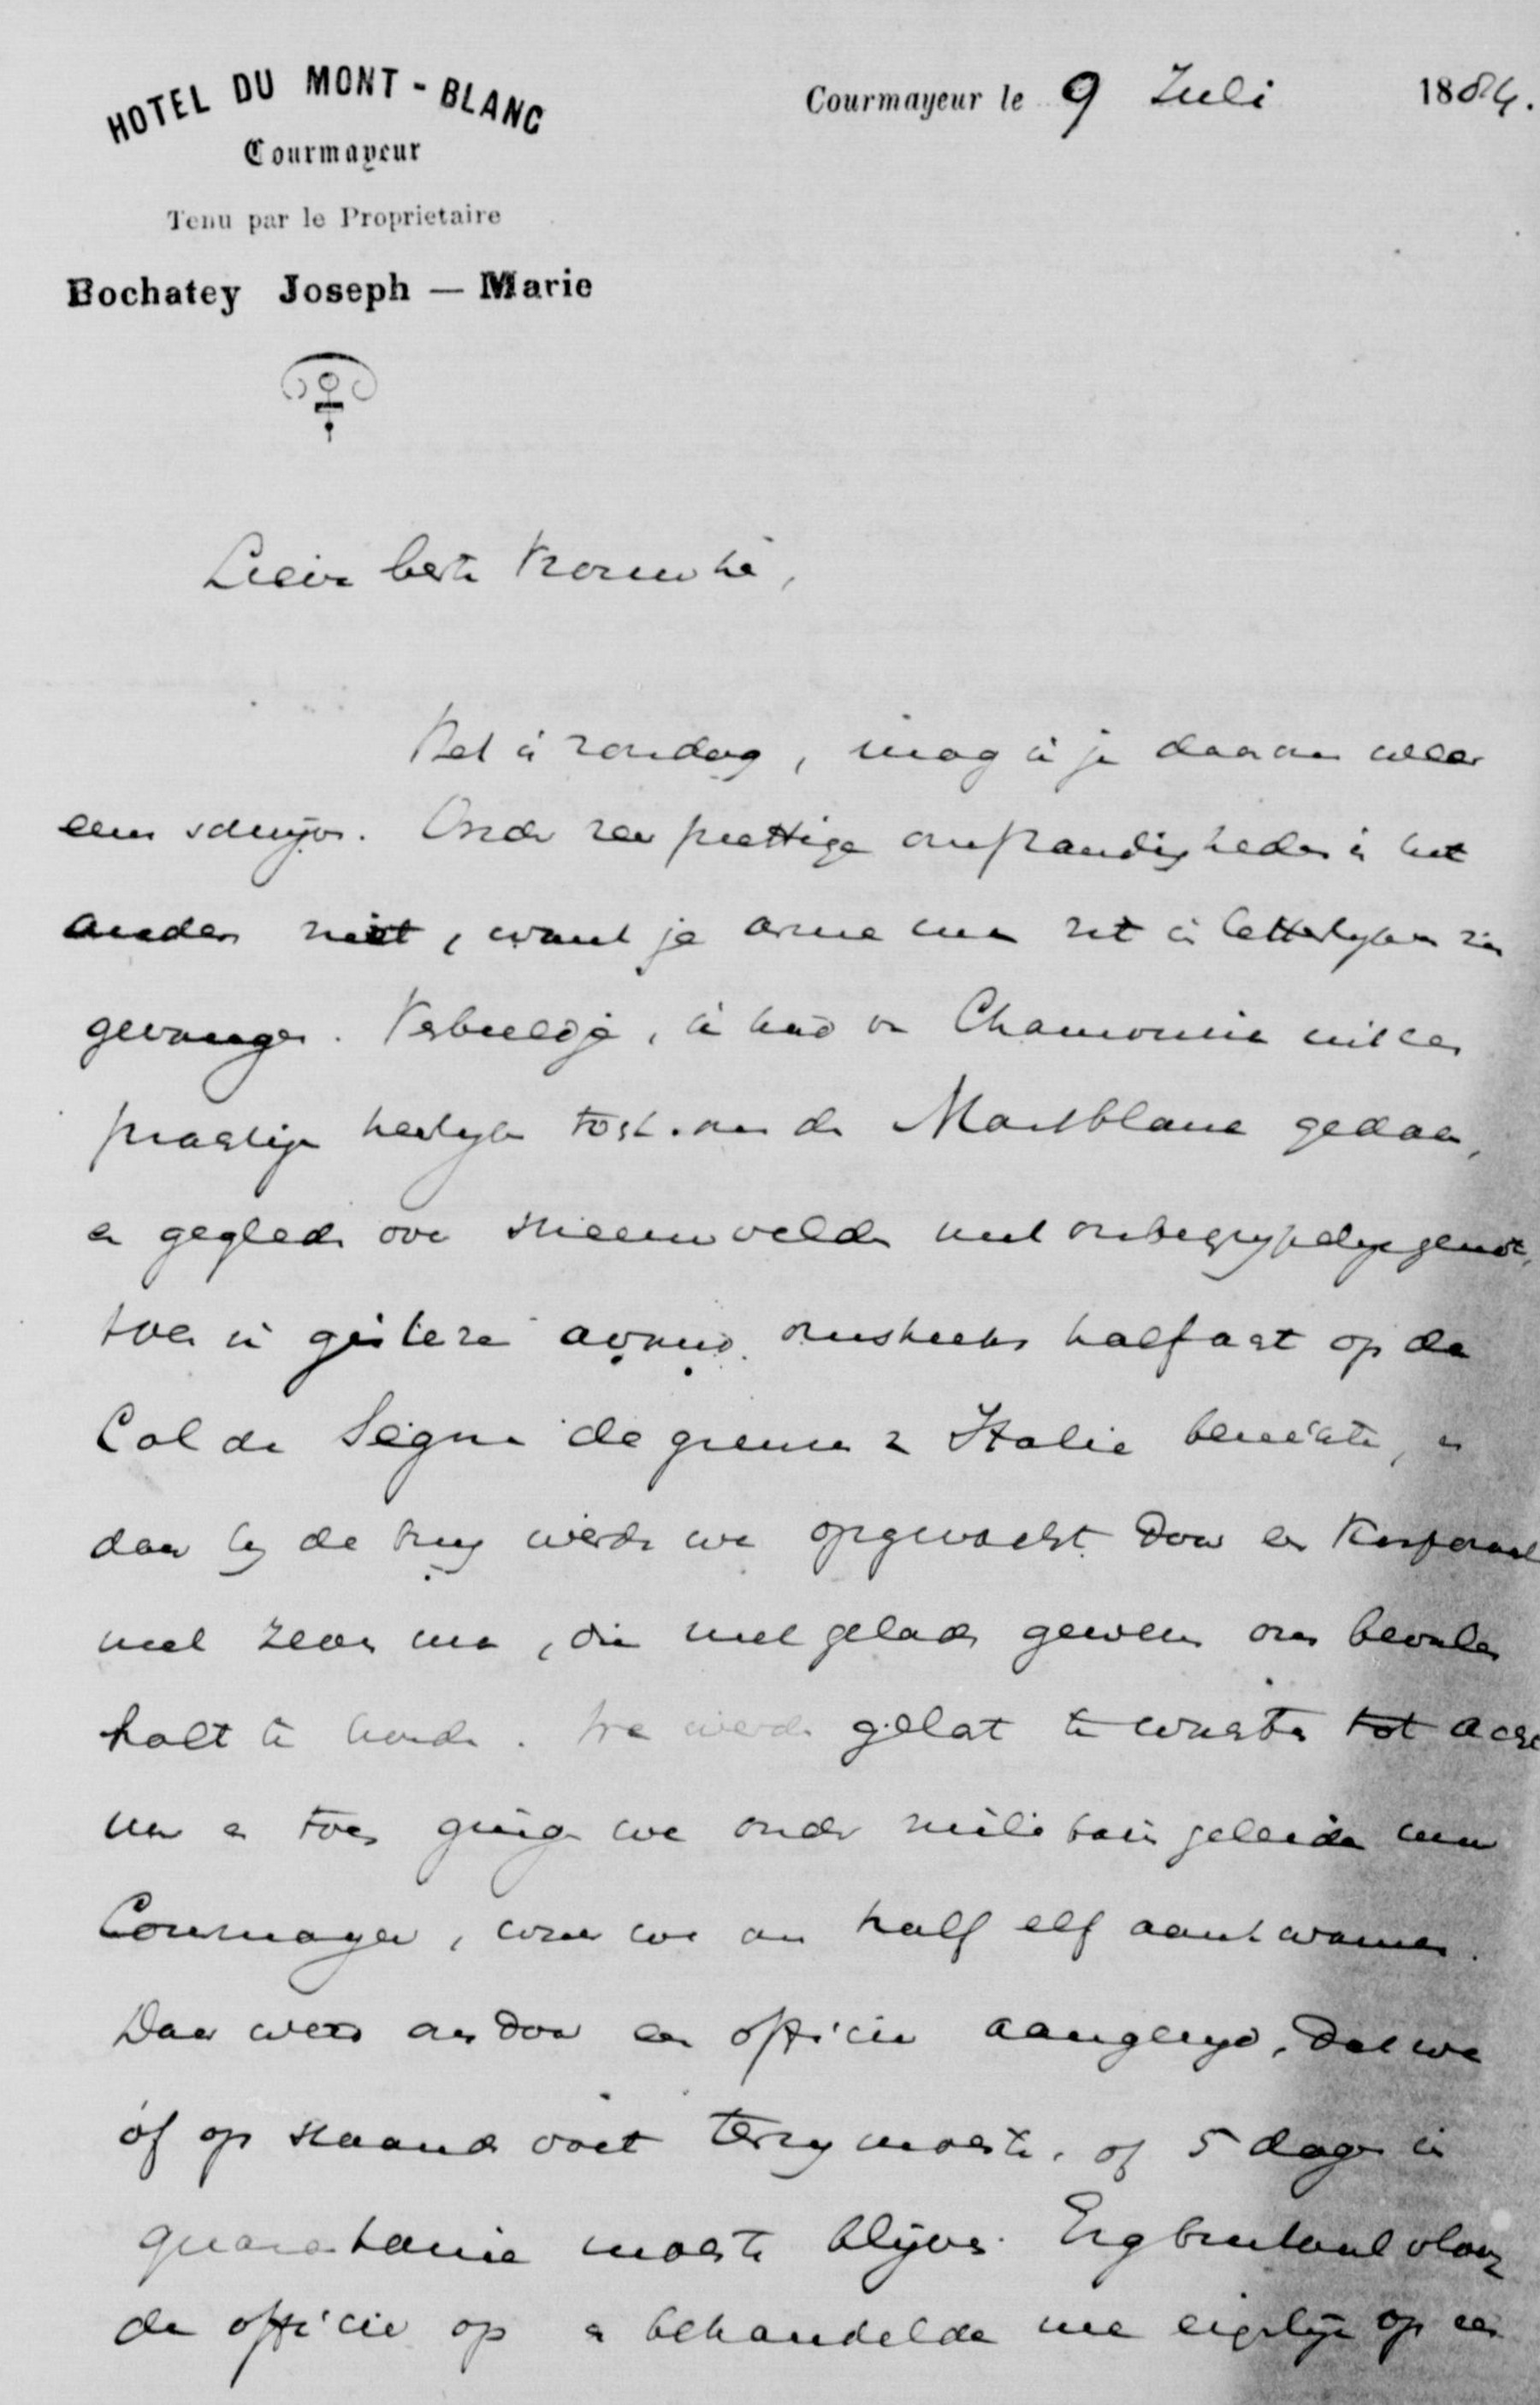 HOTEL DU MONT-BLANC
Courmayeur
Tenu par le Proprietaire
Bochatey Joseph — Marie
Courmayeur le 9 Juli 1884.
Lieve beste
Het is zondag, mag ik je daarom weer
eens schrijven. Onder zeer prettige omstandigheden is het
anders niet, want je arme man zit in letterlijken zin
gevangen. Verbeeld je, ik had van Chamounix uit een
prachtige heerlijke tocht om de Montblanc gedaan,
en gegleden over sneeuwvelden met onbegrijpelijk genot,
toen ik gisteren avond omstreeks half acht op de
Col de Seigne de grenzen van Italie bereikte, en
daar bij de brug werden we opgewacht door een Korporaal
met zeven man, die met geladen geweren ons bevalen
halt te houden. We werden gelast te wachten tot acht
uur en toen gingen we onder militair geleide naar
Courmayeur, waar we om half elf aankwamen.
Daar werd ons door een officier aangezegd, dat we
óf op staande voet terug moesten, of 5 dagen in
quarantaine moesten blijven. Erg brutaal vloog
de officier op en behandelde me eigenlijk op een